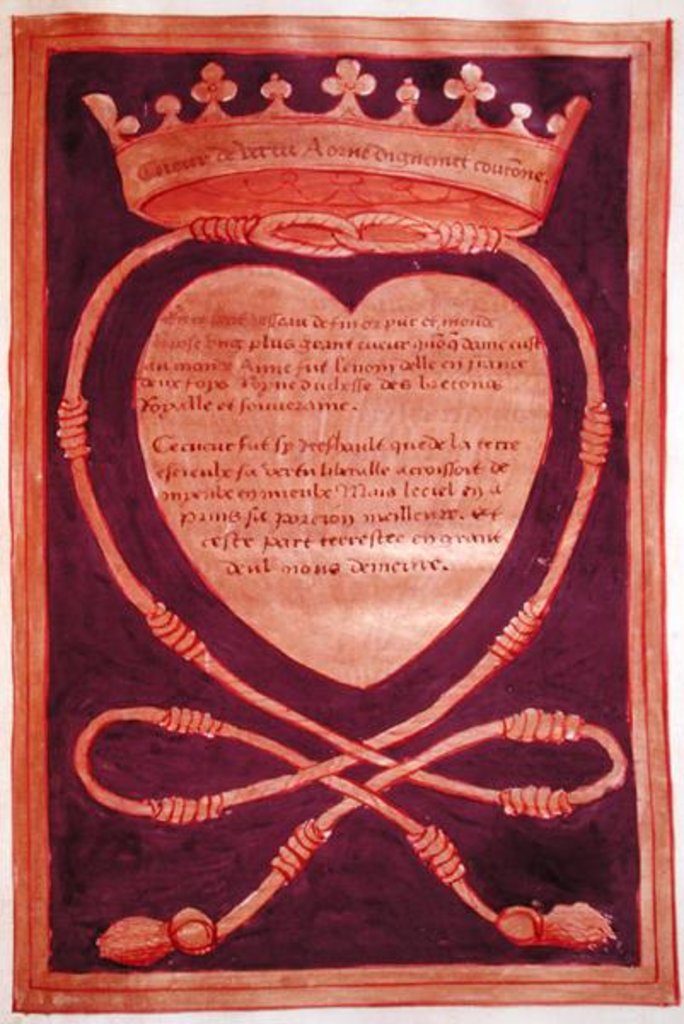 Cueur de vertu Aorne dignement couronne.
En ce petit vesseau de fin or pur et monde
repose ung plus grant cueur que oncq dame eust
au monde Anne fut le nom delle en france
deux foys Royne duchesse des bretons
Royalle et souveraine.
Ce cueur fut sy treshault que de la terre
es cieulx sa vertu liberalle acroissoit de
mieulx en mieulx Mais le ciel en a
prins sa porcion meilleure. et
ceste part terrestre en grant
deul nous demeure.